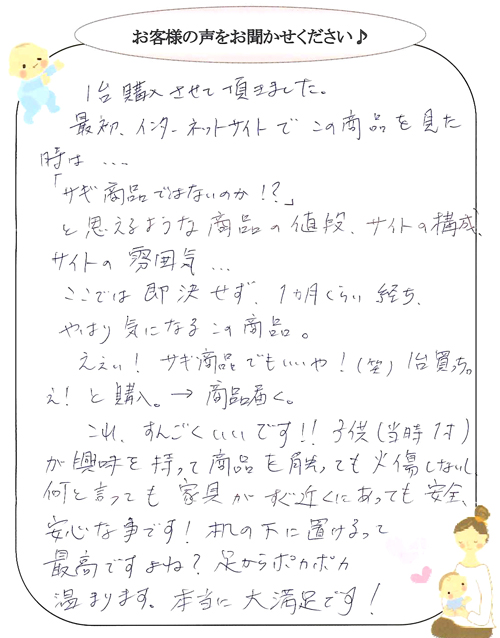 お客様の声をお聞かせください♪
1台購入させて頂きました。
最初、インターネットサイトでこの商品を見た
時は…
「サギ商品ではないのか!?」
と思えるような商品の値段、サイトの構成、
サイトの雰囲気…
ここでは即決せず、1カ月くらい経ち、
やはり気になるこの商品。
ええい!サギ商品でもいいや!(笑)1台買っちゃ
え!と購入。→商品届く。
これ、すんごくいいです!!子供(当時1才)
が興味を持って商品を触っても火傷しないし
何と言っても家具がすぐ近くにあっても安全、
安心な事です!机の下に置けるって
最高ですよね?足からポカポカ
温まります。本当に大満足です!